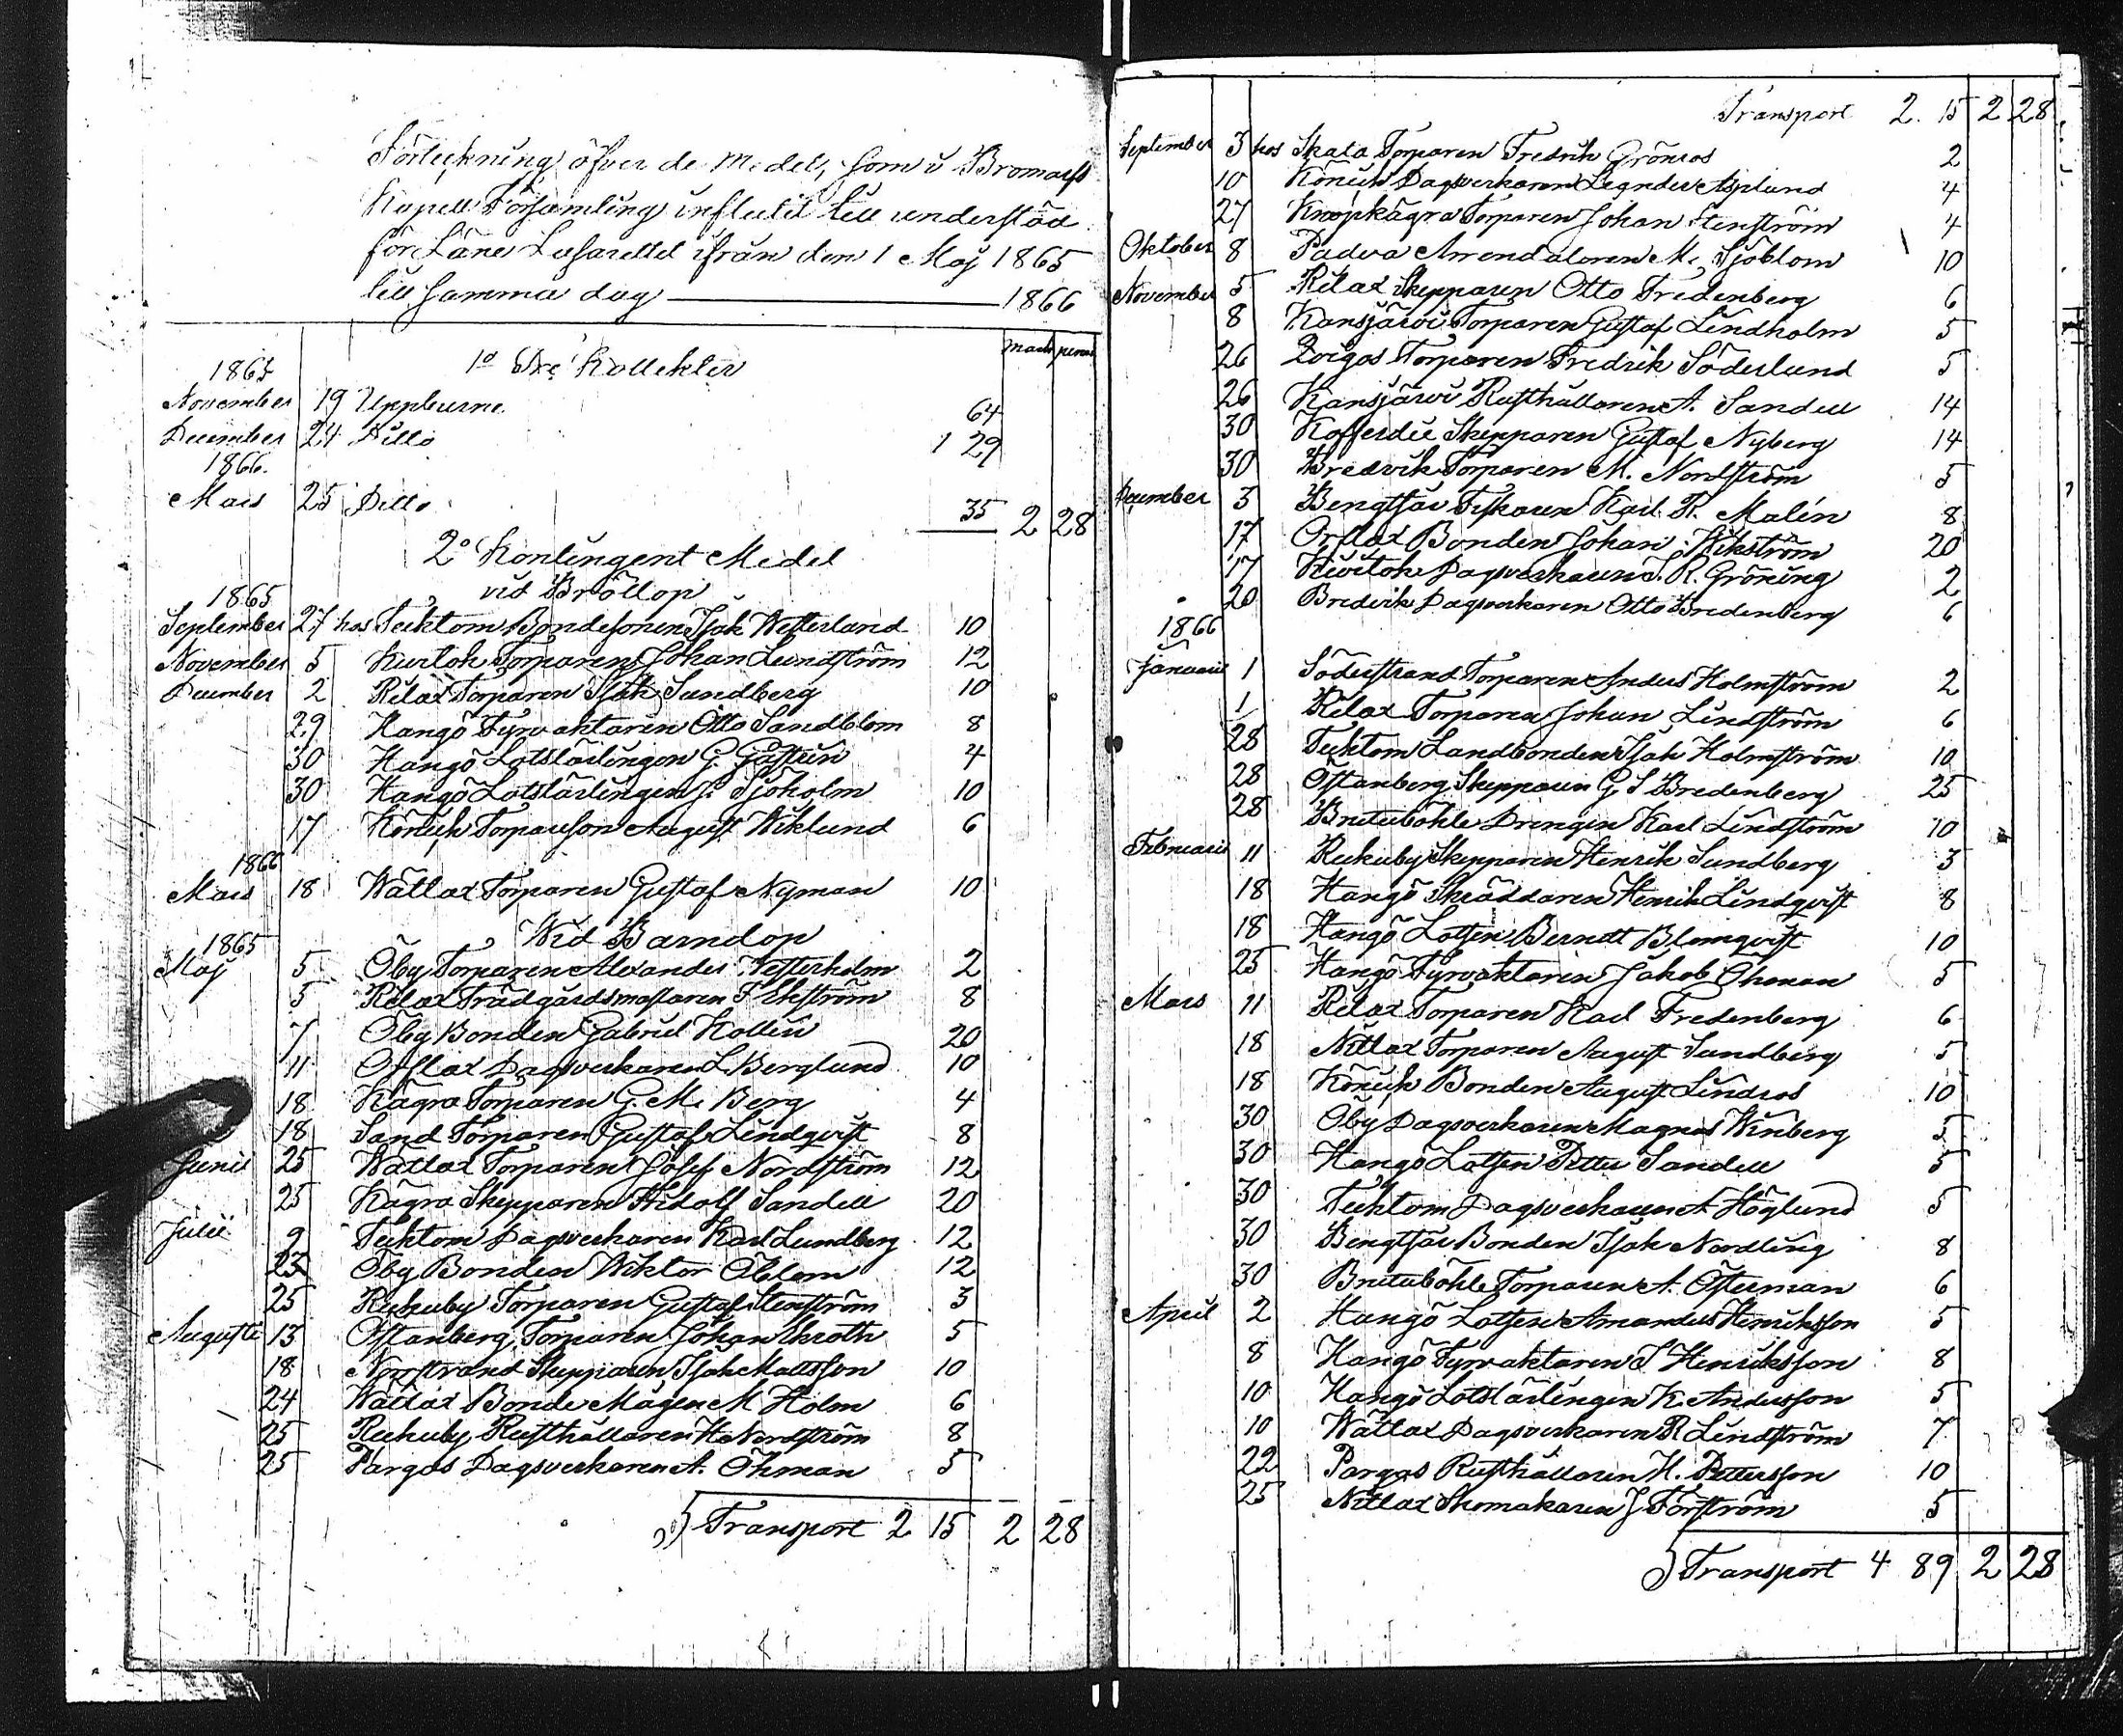 Förteckning öfver de Medel, som i Bromarfs
Kapell Församling influtit till understöd
för Läne Lasarettet ifrån den 1 Maj 1865
till samma dag — 1866
mark penni
1865 1º Tre Kollekter
November 19 Uppburne 64
December 24 Ditto 1 29
1866.
Mars 25 Ditto 35 2 28
2º Kontingent Medel
vid Bröllop
1865
September 27 hos Tecktom Bondesonen Isak Westerlund 10
November 5 Kivitok Torparen Johan Lundström 12
December 2 Rilax Torparen Isak Sundberg 10
29 Hangö Fyrvaktaren Otto Sandblom 8
30 Hangö Lotslärlingen G. 4
30 Hangö Lotslärlingen J. Sjöholm 10
17 Torparson August Wiklund 6
1866
Mars 18 Wättlax Torparen Gustaf Nyman 10
Wid Barndop
1865
Maj 5 Öby Torparen Alexander Westerholm 2
5 Rilax Trädgårdsmastaren F Ekström 8
7 Öby Bonden Gabriel Kollin 20
11 Orslax Dagsverkaren L. Berglund 10
18 Kägra Torparen G. M. Berg 4
18 Sand Torparen Gustaf Lindqvist 8
Junii 25 Wättlax Torparen Josef Nordström 12
25 Kägra Skepparen Fridolf Sandell 20
Julii 9 Tecktom Dagsverkaren Karl Lundberg 12
23 Öby Bonden Wiktor Öblom 12
25 Rekuby Torparen Gustaf Stenström 3
Augusti 13 Östanberg Torparen Johan 5
18 Norrstrand Skepparen Isak Mattsson 10
24 Wättlax Bonde Mågen M Holm 6
25 Rekuby Rusthållaren H Nordström 8
25 Pargas Dagsverkaren A. Öhman 5
Transport 2 15 2 28
Transport 2. 15 2 28
September 3 hos Skata Torparen Fredrik Grönros 2
10 Dagsverkaren Asplund 4
27 Knopkägra Torparen Johan Stenström 4
Oktober 8 Padva Arrendatoren M. Sjöblom 10
November 5 Rilax Skepparen Otto Fredenberg 6
8 Kansjärvi Torparen Gustaf Lindholm 5
26 Torparen Fredrik Söderlund 5
26 Kansjärvi Rusthållaren A. Sandell 14
30 Kofferdie Skepparen Gustaf Nyberg 14
30 Bredvik Torparen M. Nordström 5
December 3 Bengtsår Fiskaren Karl R. Malin 8
17 Orslax Bonden Johan Wikström 20
17 Kivitok Dagsverkaren S. R. Gröning 2
20 Bredvik Dagsverkaren Otto Bredenberg 6
1866
Januarii 1 Söderstrand Torparen Anders Holmström 2
1 Rilax Torparen Johan Lindström 6
28 Tecktom Landbonden Isak Holmström 10
28 Östanberg Skepparen G. S Bredenberg 25
28 Bruteböhle Drengen Karl Lindström 10
Februarii 11 Rekuby Skepparen Henrik Sundberg 3
18 Hangö Skräddaren Henrik Lindqvist 8
18 Hangö Lotsen Berndt Blomqvist 10
25 Hangö Fyrvaktaren Jakob Öhman 5
Mars 11 Rilax Torparen Karl Fredenberg 6
18 Nitlax Torparen August Sundberg 5
18 Bonden August Lindros 10
30 Öby Dagsverkaren Magnus Winberg 5
30 Hangö Lotsen Petter Sandell 5
30 Tecktom Dagsverkaren A Höglund 5
30 Bengtsår Bonden Isak Nordling 8
30 Bruteböhle Torparen A. Österman 6
April 2 Hangö Lotsen Amandus Henriksson 5
8 Hangö Fyrvaktaren S Henriksson 8
10 Hangö Lotslärlingen K. Andersson 5
10 Wättlax Dagsverkaren R Lindström 7
22 Pargas Rusthållaren H. Pettersson 10
25 Nitlax Skomakaren J Forström 5
Transport 4 89 2 28